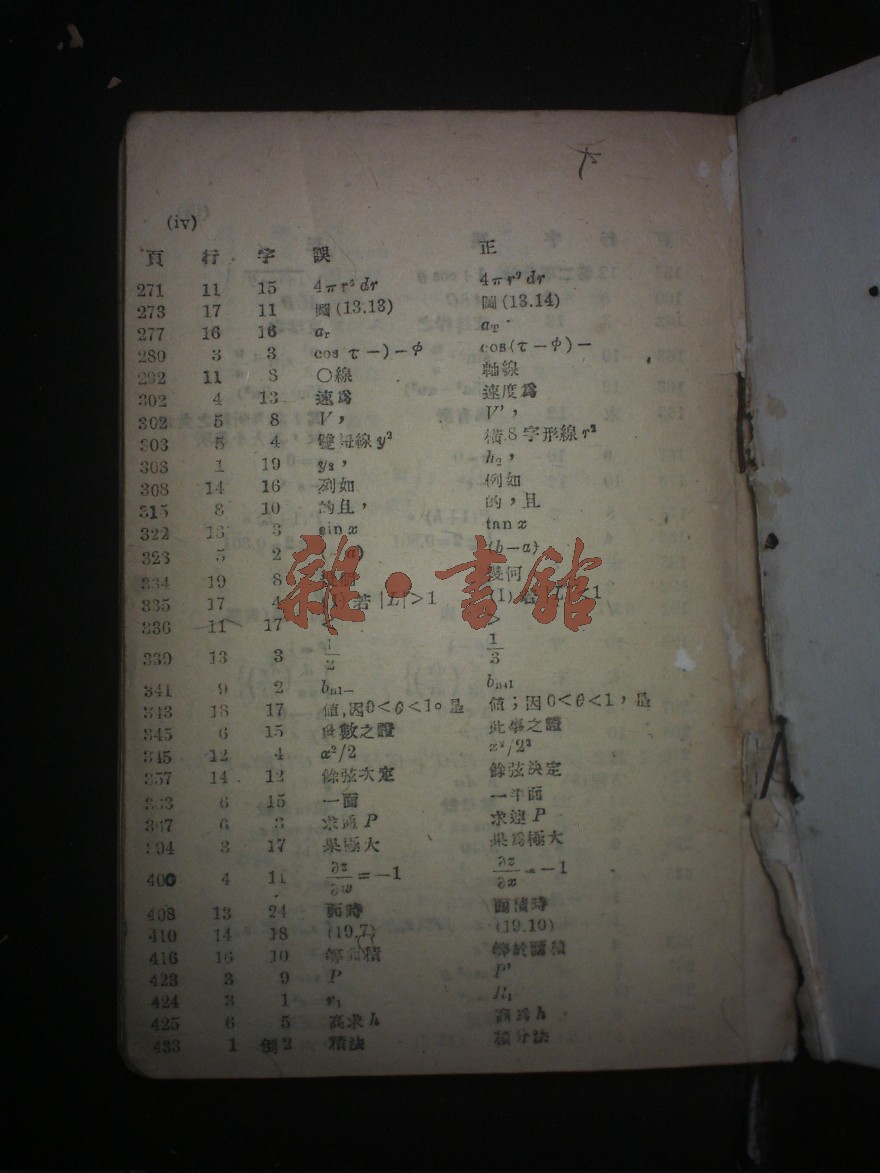 (iv)
頁 行 字 誤 正
271 11 15 4πr³dr 4πr²dr
273 17 11 圖(13.13) 圖(13.14)
277 16 16 a_r a_T
289 3 3 cos τ—)—φ cos(τ—φ)—
292 11 8 〇線 軸線
302 4 13 速爲 速度爲
302 5 8 V, V',
303 5 4 雙母線y² 橫8字形線r²
308 1 19 y₂, h₂,
308 14 16 列如 例如
315 8 10 的且, 的,且
322 3 sin x tan x
323 5 2 (b—a)
334 19 8 幾何
335 17 4 (1)若|L|>1
336 11 17 < >
339 13 3 1/2 1/3
341 9 2 b_{n1—} b_{n+1}
343 18 17 値,因0<θ<1。是 値;因0<θ<1,是
345 6 15 此數之證 此事之證
345 12 4 x²/2²
357 14 12 餘弦次定 餘弦決定
6 15 一面 一平面
6 3 P 求速P
394 3 17 果極大 果爲極大
400 4 11 ∂z/∂w=—1 ∂z/∂x=—1
408 13 24 面時 面積時
410 14 18 (19.7) (19.10)
416 16 10 等於面積
423 3 9 P P'
424 3 1 r₁ R₁
425 6 5 高求h 高爲h
433 1 倒2 積法 積分法
雜·書館